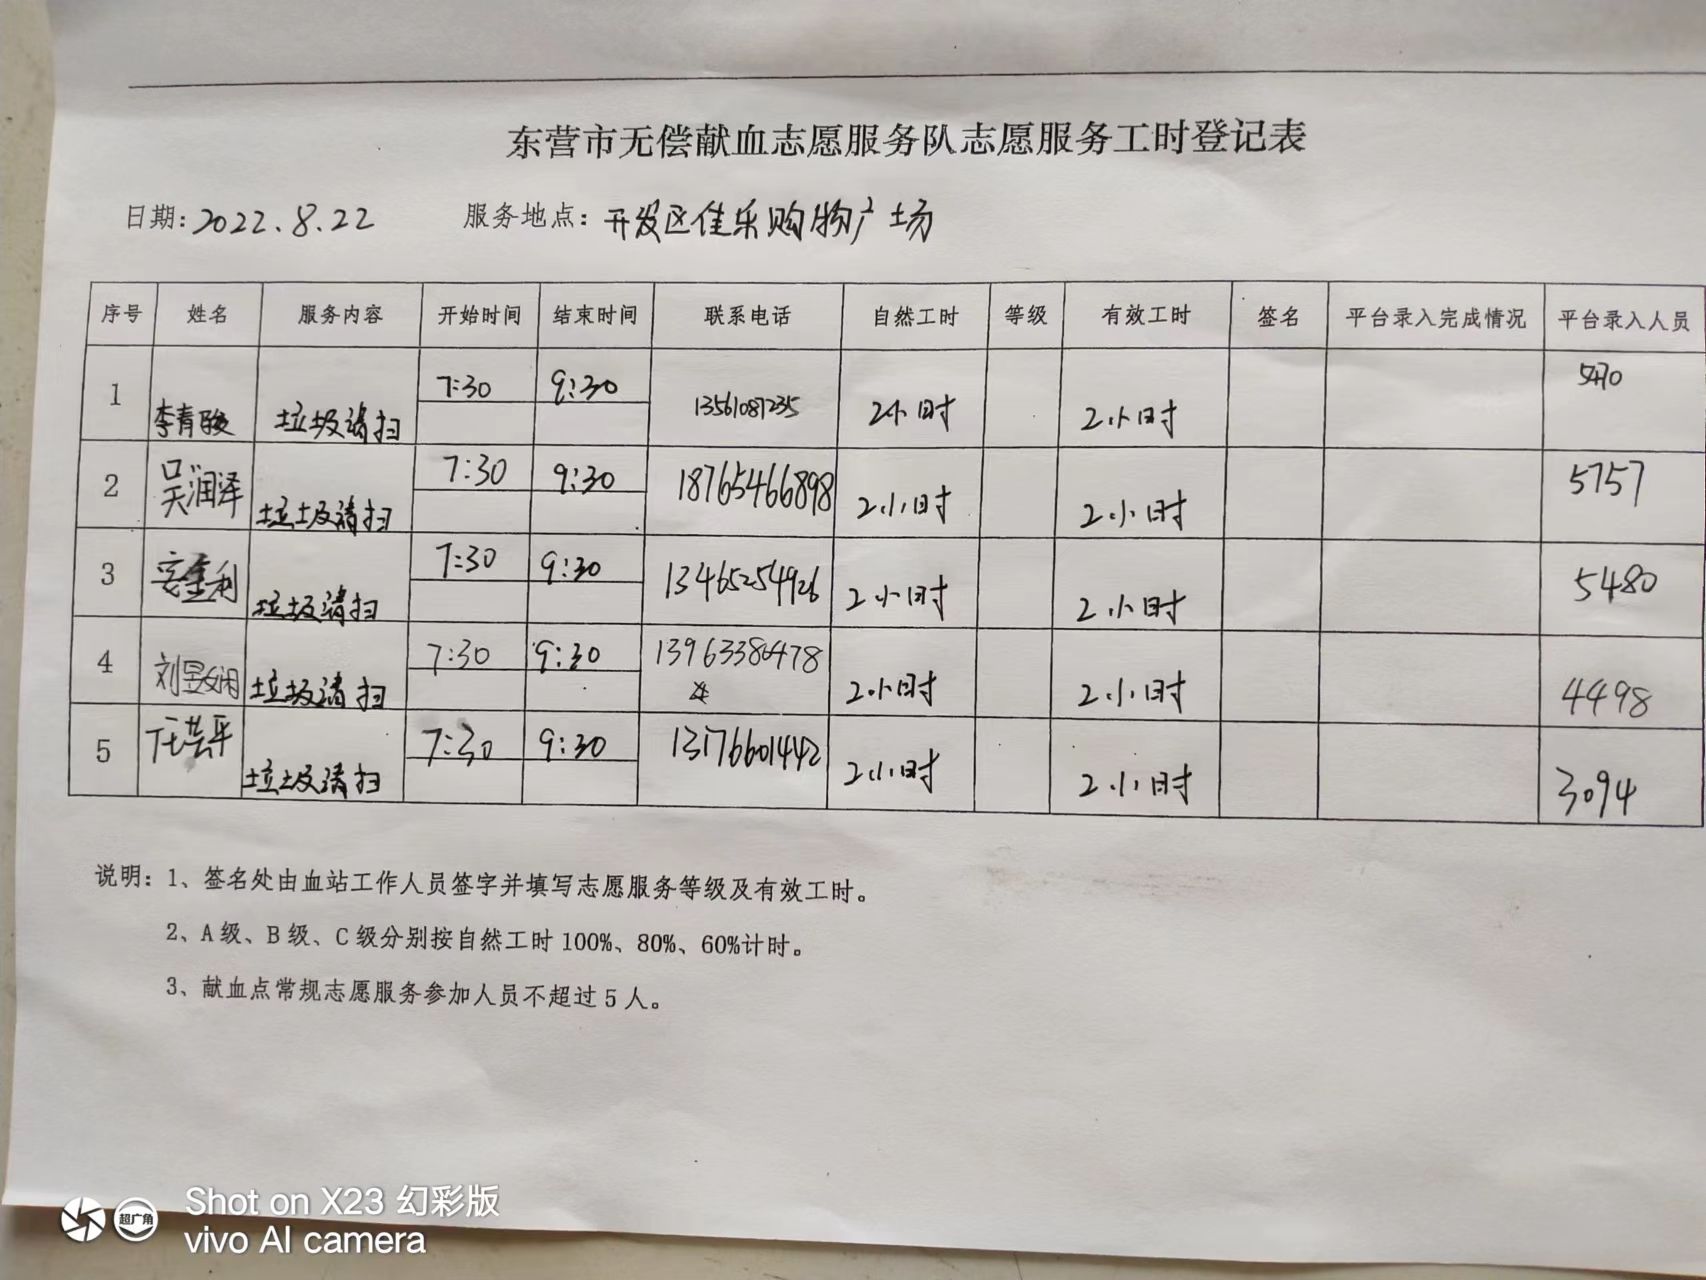 东营市无偿献血志愿服务队志愿服务工时登记表
日期: 2022.8.22 服务地点: 开发区佳乐购物广场
序号 姓名 服务内容 开始时间 结束时间 联系电话 自然工时 等级 有效工时 签名 平台录入完成情况 平台录入人员
1 李青骏 垃圾清扫 7:30 9:30 13561087235 2小时 2小时 5470
2 吴润泽 垃圾清扫 7:30 9:30 18765466898 2小时 2小时 5757
3 安金利 垃圾清扫 7:30 9:30 13465254926 2小时 2小时 5480
4 刘昱娴 垃圾清扫 7:30 9:30 13963386478 2小时 2小时 4498
5 任芸平 垃圾清扫 7:30 9:30 13176601442 2小时 2小时 3094
说明: 1、签名处由血站工作人员签字并填写志愿服务等级及有效工时。
2、A级、B级、C级分别按自然工时100%、80%、60%计时。
3、献血点常规志愿服务参加人员不超过5人。
超广角
Shot on X23 幻彩版
vivo AI camera